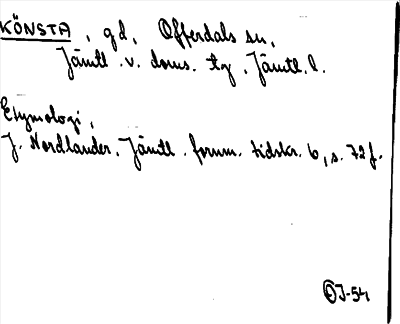 KÖNSTA, gd, Offerdals sn,
Jämtl. v. doms. tg, Jämtl. l.
Etymologi,
J. Nordlander, Jämtl. fornm. tidskr. 6, s. 72 f.
J-54